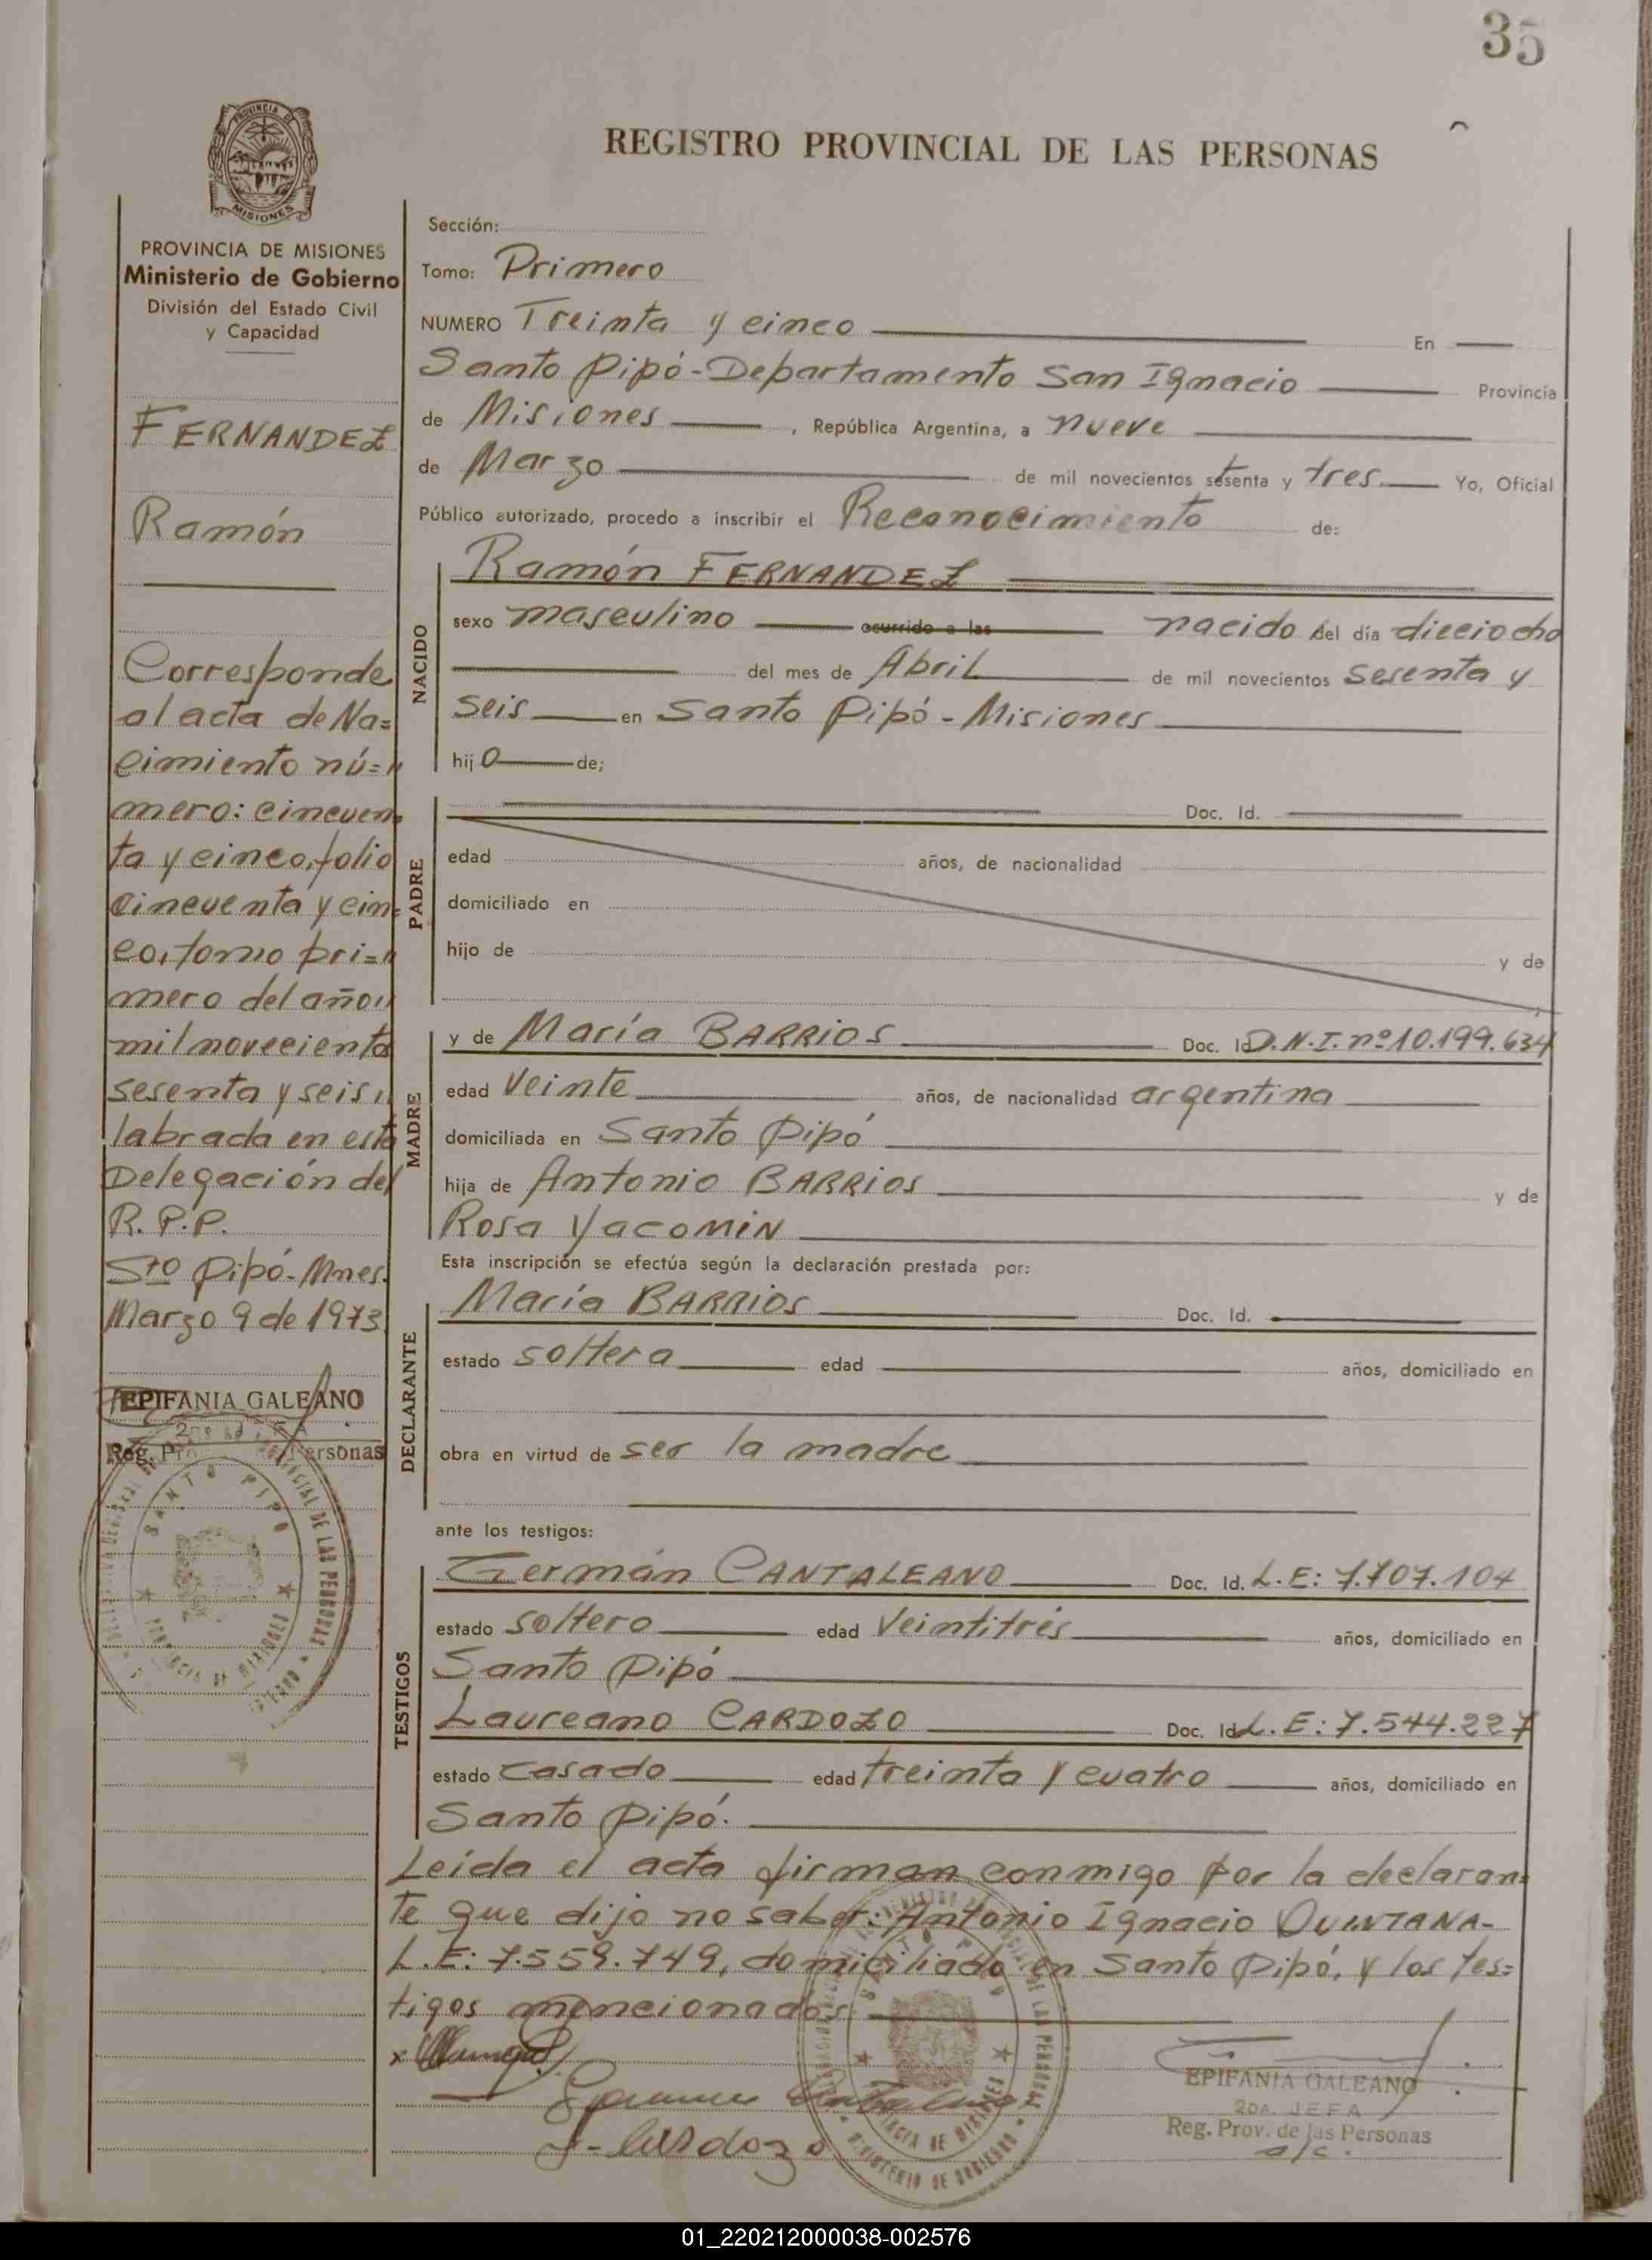 35
REGISTRO PROVINCIAL DE LAS PERSONAS
PROVINCIA DE
MISIONES
PROVINCIA DE MISIONES
Ministerio de Gobierno
División del Estado Civil
y Capacidad
FERNANDEZ
Ramón
Corresponde
al acta de Na=
cimiento nú=
mero: cincuen
ta y cinco, folio
cincuenta y cin=
co, tomo pri=
mero del año
mil novecientos
sesenta y seis
labrada en esta
Delegación del
R.P.P.
Sto Pipó-Mnes.
Marzo 9 de 1973
EPIFANIA GALEANO
Reg. Personas
SANTO PIPO
PROVINCIA DE MISIONES
Sección:
Tomo: Primero
NUMERO Treinta y cinco En
Santo Pipó-Departamento San Ignacio Provincia
de Misiones, República Argentina, a nueve
de Marzo de mil novecientos setenta y tres. Yo, Oficial
Público autorizado, procedo a inscribir el Reconocimiento de:
NACIDO
Ramón FERNANDEZ
sexo masculino ocurrido a las nacido del día dieciocho
del mes de Abril de mil novecientos sesenta y
seis en Santo Pipó-Misiones
hijo de;
PADRE
Doc. Id.
edad años, de nacionalidad
domiciliado en
hijo de y de
MADRE
y de María BARRIOS Doc. Id D.N.I. nº 10.199.634
edad veinte años, de nacionalidad argentina
domiciliada en Santo Pipó
hija de Antonio BARRIOS y de
Rosa YACOMIN
Esta inscripción se efectúa según la declaración prestada por:
DECLARANTE
María BARRIOS Doc. Id.
estado soltera edad años, domiciliado en
obra en virtud de ser la madre
ante los testigos:
TESTIGOS
Germán CANTALEANO Doc. Id. L.E: 7.707.104
estado soltero edad Veintitrés años, domiciliado en
Santo Pipó
Laureano CARDOZO Doc. Id L.E: 7.544.227
estado casado edad treinta y cuatro años, domiciliado en
Santo Pipó.
Leída el acta firman conmigo por la declaran=
te que dijo no saber: Antonio Ignacio QUINTANA-
L.E: 7.559.749, domiciliado en Santo Pipó, y los tes=
tigos mencionados.
L. Cardozo
EPIFANIA GALEANO
2DA. JEFA
Reg. Prov. de las Personas
a/c.
SANTO PIPO
PROVINCIA DE MISIONES
MINISTERIO DE GOBIERNO
01_220212000038-002576